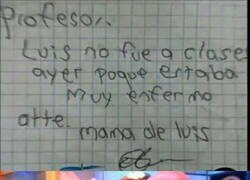 Profesor.
Luis no fue a clase
ayer poque estaba
muy enfermo
atte.
mama de luis